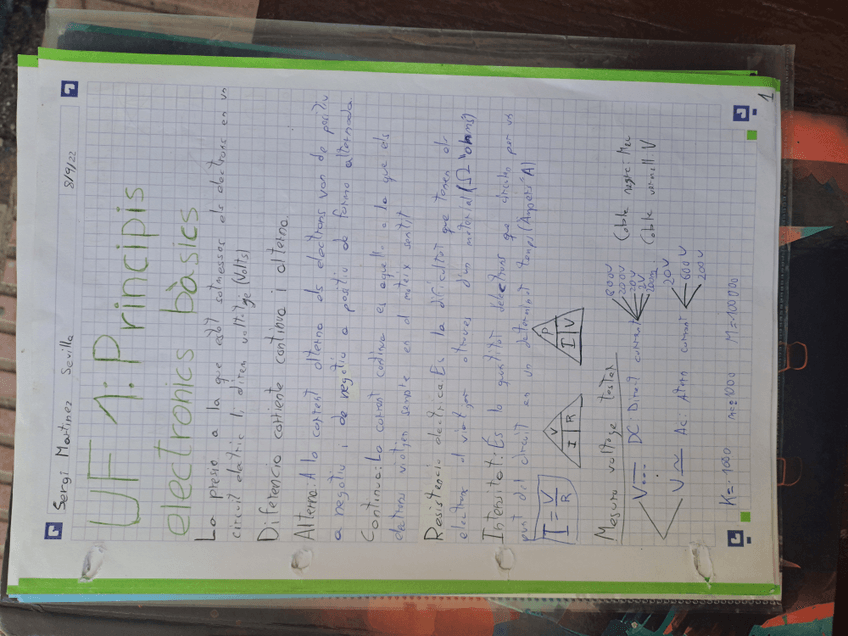 Sergi Martinez Sevilla 8/9/22
UF 1: Principis
electronics bàsics
La presio a la que estàt sotmessos els electrons en un
circuit electric li diem voltatge (Volts)
Diferencia corriente continua i alterna.
Alterna: A la corrent alterna els electrons van de positiu
a negatiu i de negatiu a positiu de forma alternada
Continua: La corrent continua es aquella a la que els
electrons viatjen sempre en el mateix sentit
Resistencia electrica: Es la dificultat que tenen els
electrons al viatjar atraves d'un material (Ω "ohms")
Intensitat: Es la quantitat d'electrons que circulen per un
punt del circuit en un determinat temps (Ampers "A)
I = V/R
V
I R
P
I V
Mesura voltage tester
V DC Direit current
600V
200V
20V
2V
200m
V ~ Ac Altern current
20V
600V
200V
Cable negre:
Cable vermell: V
K=1000 M=100000
1